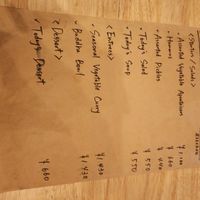 <Starters / Salads>
• Assorted Vegetable Appetizers ¥1,100
• Hummus ¥660
• Assorted Pickles ¥440
• Today's Salad ¥550
• Today's Soup ¥550
<Entrees>
• Seasonal Vegetable Curry ¥1,430
• Buddha Bowl ¥1,430
<Dessert>
• Today's Dessert ¥660